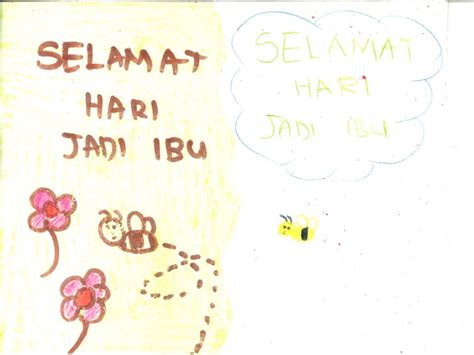 SELAMAT
HARI
JADI IBU
SELAMAT
HARI
JADI IBU